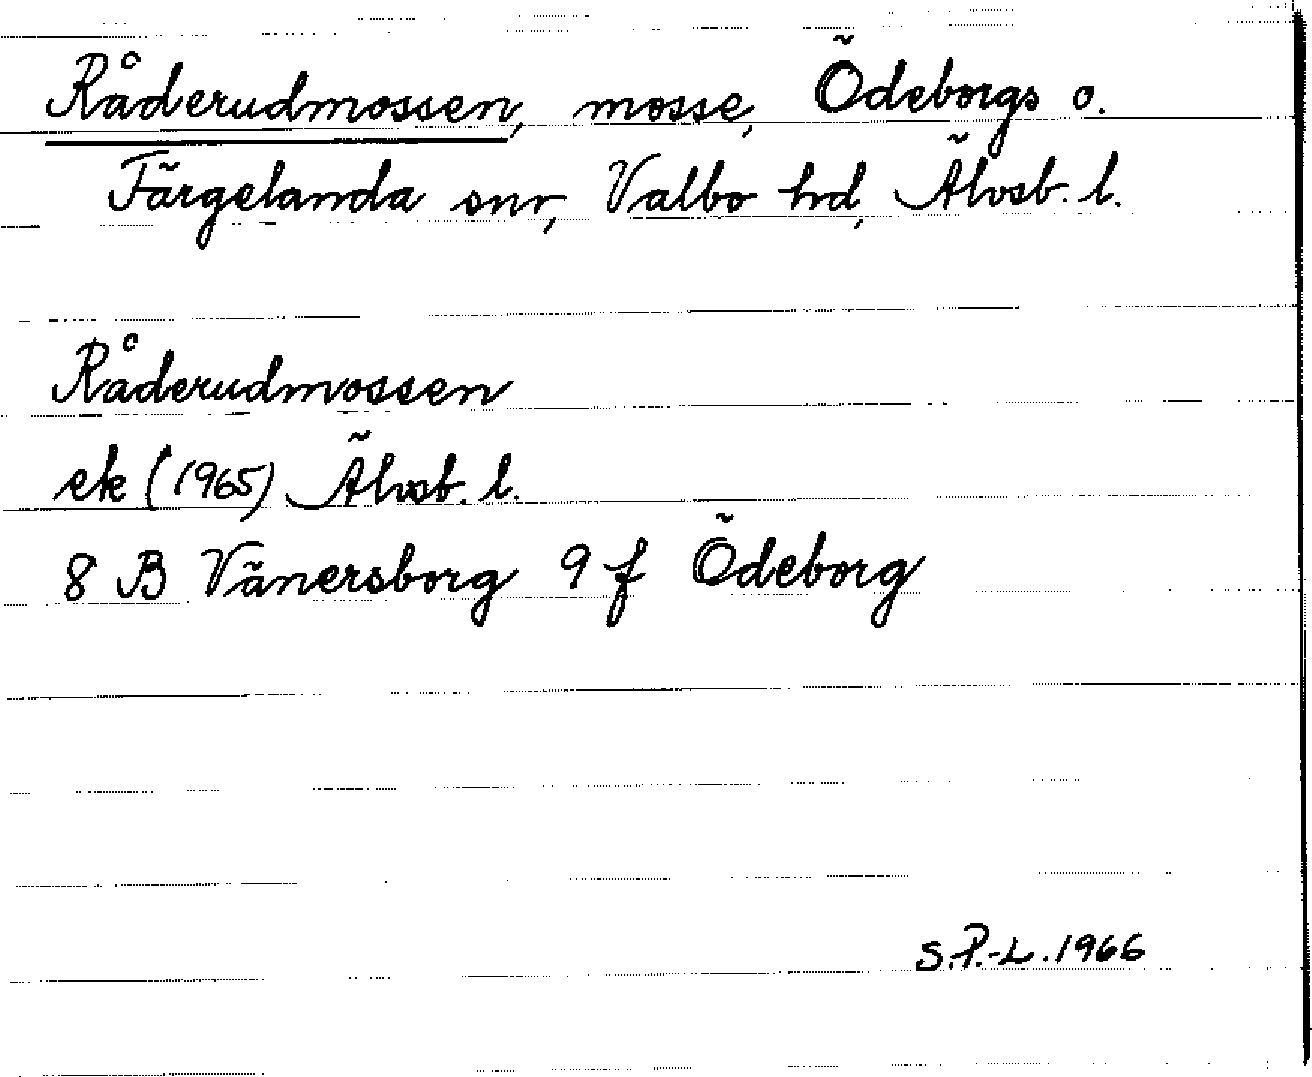 Råderudmossen, mosse, Ödeborgs o.
Färgelanda snr, Valbo hd, Älvsb. l.
Råderudmossen
ek (1965) Älvsb. l.
8 B Vänersborg 9 f Ödeborg
S.P.-L. 1966